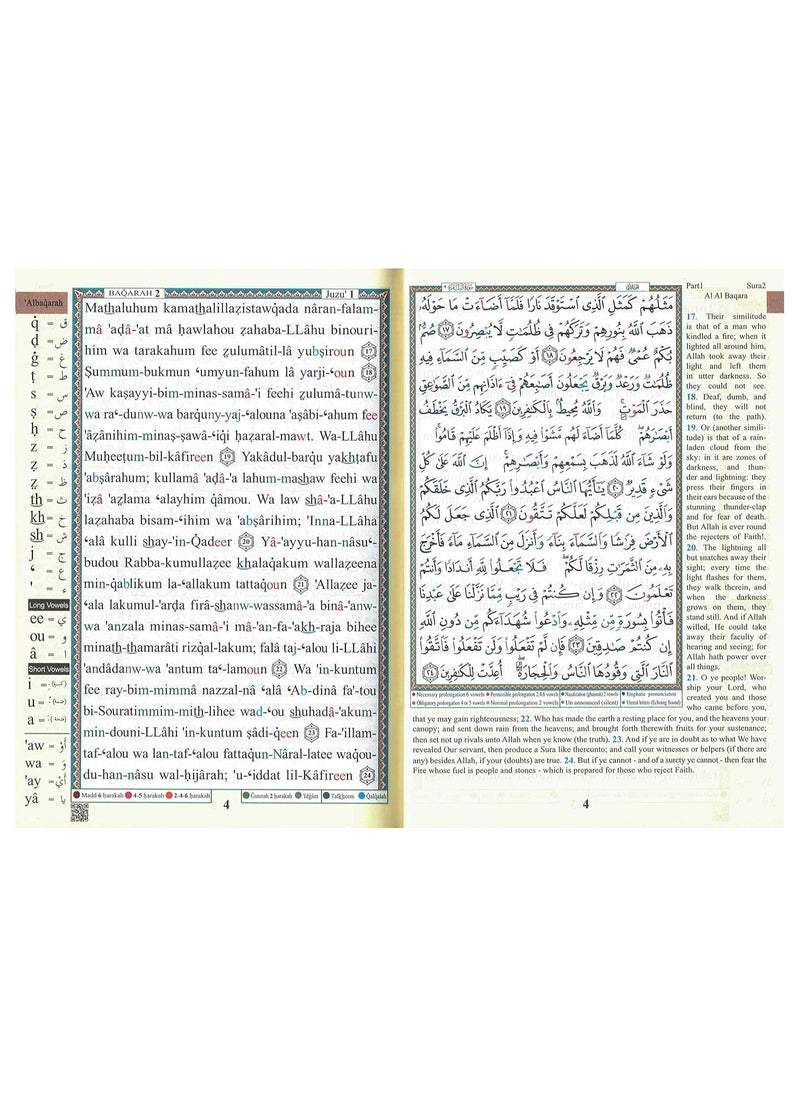 'Albaqarah
BAQARAH 2
Juzu' 1
q̇ = ق
ḍ = ض
ġ = غ
ṭ = ط
s = س
ṣ = ص
ḥ = ح
z = ز
ẕ = ذ
ẓ = ظ
th = ث
kh = خ
sh = ش
j = ج
ʻ = ع
' = ء
Long Vowels
ee = ي
ou = و
â = ا
Short Vowels
i =
u =
a =
'aw = أَوْ
wa = وَ
'ay = أَيْ
yâ = يا
Mathaluhum kamathalillaẕistawqada nâran-falam-
mâ 'aḍâ-'at mâ ḥawlahou ẕahaba-LLâhu binouri-
him wa tarakahum fee ẓulumâtil-lâ yubṣiroun 17
Ṣummum-bukmun ʻumyun-fahum lâ yarji-ʻoun 18
'Aw kaṣayyi-bim-minas-samâ-'i feehi ẓulumâ-tunw-
wa raʻ-dunw-wa barquny-yaj-ʻalouna 'aṣâbi-ʻahum fee
'âẕânihim-minaṣ-ṣawâ-ʻiqi ḥaẕaral-mawt. Wa-LLâhu
Muḥeeṭum-bil-kâfireen 19 Yakâdul-barqu yakhṭafu
'abṣârahum; kullamâ 'aḍâ-'a lahum-mashaw feehi wa
'iẕâ 'aẓlama ʻalayhim qâmou. Wa law shâ-'a-LLâhu
laẕahaba bisam-ʻihim wa 'abṣârihim; 'Inna-LLâha
ʻalâ kulli shay-'in-Qadeer 20 Yâ-'ayyu-han-nâsuʻ-
budou Rabba-kumullaẕee khalaqakum wallaẕeena
min-qablikum la-ʻallakum tattaqoun 21 'Allaẕee ja-
ʻala lakumul-'arḍa firâ-shanw-wassamâ-'a binâ-'anw-
wa 'anzala minas-samâ-'i mâ-'an-fa-'akh-raja bihee
minath-thamarâti rizqal-lakum; falâ taj-ʻalou li-LLâhi
'andâdanw-wa 'antum ta-ʻlamoun 22 Wa 'in-kuntum
fee ray-bim-mimmâ nazzal-nâ ʻalâ ʻAb-dinâ fa'-tou
bi-Souratimmim-mith-lihee wad-ʻou shuhadâ-'akum-
min-douni-LLâhi 'in-kuntum ṣâdi-qeen 23 Fa-'illam-
taf-ʻalou wa lan-taf-ʻalou fattaqun-Nâral-latee waqou-
du-han-nâsu wal-ḥijârah; 'u-ʻiddat lil-Kâfireen 24
Madd 6 ḥarakah 4-5 ḥarakah 2-4-6 ḥarakah
Ġunnah 2 ḥarakah 'Idġâm Tafkheem Qalqalah
4
مَثَلُهُمْ كَمَثَلِ ٱلَّذِى ٱسْتَوْقَدَ نَارًا فَلَمَّآ أَضَآءَتْ مَا حَوْلَهُۥ
ذَهَبَ ٱللَّهُ بِنُورِهِمْ وَتَرَكَهُمْ فِى ظُلُمَٰتٍ لَّا يُبْصِرُونَ ١٧ صُمٌّۢ
بُكْمٌ عُمْىٌ فَهُمْ لَا يَرْجِعُونَ ١٨ أَوْ كَصَيِّبٍ مِّنَ ٱلسَّمَآءِ فِيهِ
ظُلُمَٰتٌ وَرَعْدٌ وَبَرْقٌ يَجْعَلُونَ أَصَٰبِعَهُمْ فِىٓ ءَاذَانِهِم مِّنَ ٱلصَّوَٰعِقِ
حَذَرَ ٱلْمَوْتِ ۚ وَٱللَّهُ مُحِيطٌۢ بِٱلْكَٰفِرِينَ ١٩ يَكَادُ ٱلْبَرْقُ يَخْطَفُ
أَبْصَٰرَهُمْ ۖ كُلَّمَآ أَضَآءَ لَهُم مَّشَوْا۟ فِيهِ وَإِذَآ أَظْلَمَ عَلَيْهِمْ قَامُوا۟ ۚ
وَلَوْ شَآءَ ٱللَّهُ لَذَهَبَ بِسَمْعِهِمْ وَأَبْصَٰرِهِمْ ۚ إِنَّ ٱللَّهَ عَلَىٰ كُلِّ
شَىْءٍ قَدِيرٌ ٢٠ يَٰٓأَيُّهَا ٱلنَّاسُ ٱعْبُدُوا۟ رَبَّكُمُ ٱلَّذِى خَلَقَكُمْ
وَٱلَّذِينَ مِن قَبْلِكُمْ لَعَلَّكُمْ تَتَّقُونَ ٢١ ٱلَّذِى جَعَلَ لَكُمُ
ٱلْأَرْضَ فِرَٰشًا وَٱلسَّمَآءَ بِنَآءً وَأَنزَلَ مِنَ ٱلسَّمَآءِ مَآءً فَأَخْرَجَ
بِهِۦ مِنَ ٱلثَّمَرَٰتِ رِزْقًا لَّكُمْ ۖ فَلَا تَجْعَلُوا۟ لِلَّهِ أَندَادًا وَأَنتُمْ
تَعْلَمُونَ ٢٢ وَإِن كُنتُمْ فِى رَيْبٍ مِّمَّا نَزَّلْنَا عَلَىٰ عَبْدِنَا
فَأْتُوا۟ بِسُورَةٍ مِّن مِّثْلِهِۦ وَٱدْعُوا۟ شُهَدَآءَكُم مِّن دُونِ ٱللَّهِ
إِن كُنتُمْ صَٰدِقِينَ ٢٣ فَإِن لَّمْ تَفْعَلُوا۟ وَلَن تَفْعَلُوا۟ فَٱتَّقُوا۟
ٱلنَّارَ ٱلَّتِى وَقُودُهَا ٱلنَّاسُ وَٱلْحِجَارَةُ ۖ أُعِدَّتْ لِلْكَٰفِرِينَ ٢٤
Necessary prolongation 6 vowels Permissible prolongation 2,4,6 vowels Nazalization (ghunnah) 2 vowels Emphatic pronunciation
Obligatory prolongation 4 or 5 vowels Normal prolongation 2 vowels Un announced (silent) Unrest letters (Echoing Sound)
Part1 Sura2
Al Al Baqara
17. Their similitude
is that of a man who
kindled a fire; when it
lighted all around him,
Allah took away their
light and left them
in utter darkness. So
they could not see.
18. Deaf, dumb, and
blind, they will not
return (to the path).
19. Or (another simili-
tude) is that of a rain-
laden cloud from the
sky: in it are zones of
darkness, and thun-
der and lightning: they
press their fingers in
their ears because of the
stunning thunder-clap
and for fear of death.
But Allah is ever round
the rejecters of Faith!.
20. The lightning all
but snatches away their
sight; every time the
light flashes for them,
they walk therein, and
when the darkness
grows on them, they
stand still. And if Allah
willed, He could take
away their faculty of
hearing and seeing; for
Allah hath power over
all things.
21. O ye people! Wor-
ship your Lord, who
created you and those
who came before you,
that ye may gain righteousness; 22. Who has made the earth a resting place for you, and the heavens your
canopy; and sent down rain from the heavens; and brought forth therewith fruits for your sustenance;
then set not up rivals unto Allah when ye know (the truth). 23. And if ye are in doubt as to what We have
revealed Our servant, then produce a Sura like thereunto; and call your witnesses or helpers (if there are
any) besides Allah, if your (doubts) are true. 24. But if ye cannot - and of a surety ye cannot - then fear the
Fire whose fuel is people and stones - which is prepared for those who reject Faith.
4